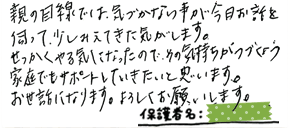 親の目線では、気づかない事が今日お話を
伺って、少しみえてきた気がします。
せっかくやる気になったので、その気持ちがつづくよう
家庭でもサポートしていきたいと思います。
お世話になります。よろしくお願いします。
保護者名: